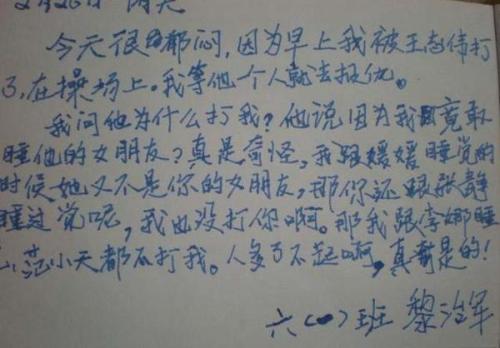 今天很都闷，因为早上我被王志伟打
了，在操场上。我等他个人就去报仇。
我问他为什么打我？他说因为我竟敢
睡他的女朋友？真是奇怪，我跟媛媛睡觉的
时候她又不是你的女朋友，那你还跟张静
睡过觉呢，我也没打你啊。那我跟李娜睡
范小天都不打我。人多了不起啊，真是的！
六(一)班 黎治军